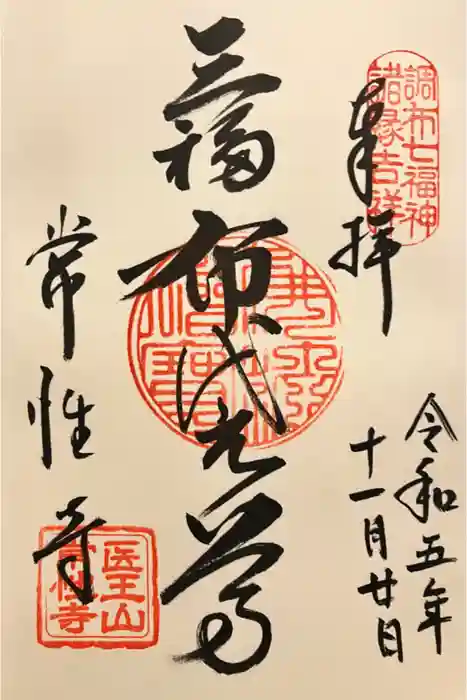 調布七福神
諸縁吉祥
奉拝
令和五年
十一月廿日
布袋尊
常性寺
医王山
常性寺